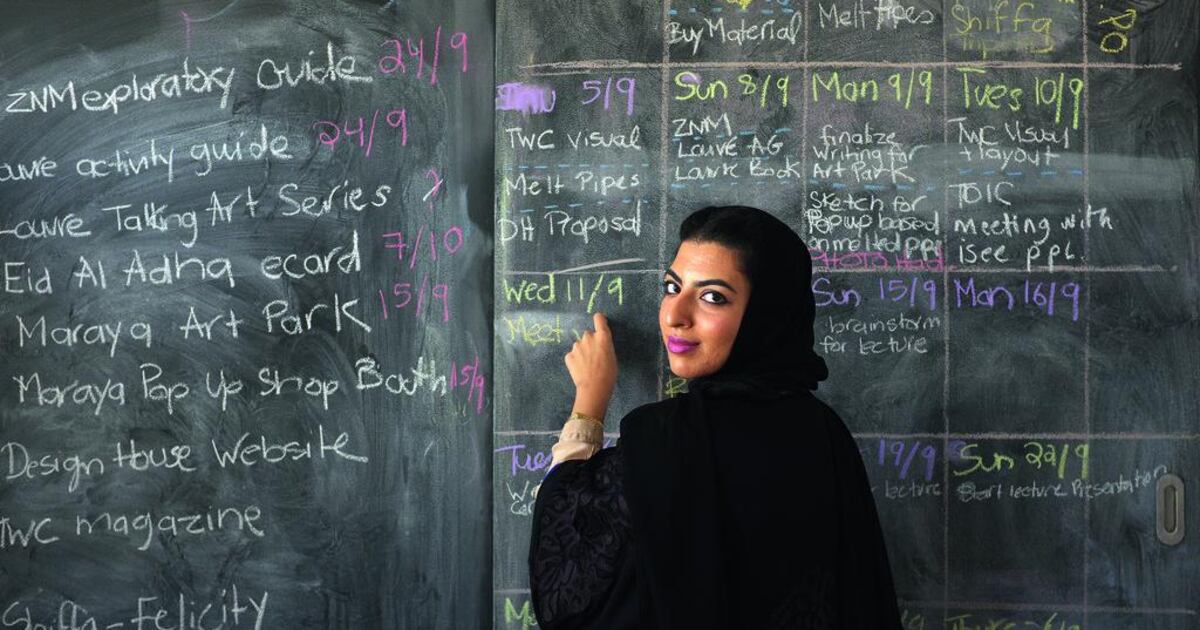 ZNM exploratory Guide 24/9
activity guide 24/9
Louvre Talking Art Series ?
Eid Al Adha ecard 7/10
Maraya Art Park 15/9
Maraya Pop Up Shop Booth 15/9
Design House Website
TWC magazine
Shiffa - Felicity
Buy Material
Melt Pipes
Shiffa
5/9
TWC Visual
Melt Pipes
DH Proposal
Sun 8/9
ZNM
Louvre AG
Louvre Book
Mon 9/9
finalize
writing for
Art Park
Sketch for
Popup based
on melted ppl
Tues 10/9
TWC Visual
+ layout
TDIC
meeting with
isee ppl.
Wed 11/9
Meet
Sun 15/9
brainstorm
for lecture
Mon 16/9
Tues
19/9
lecture
Sun 22/9
Start lecture Presentation